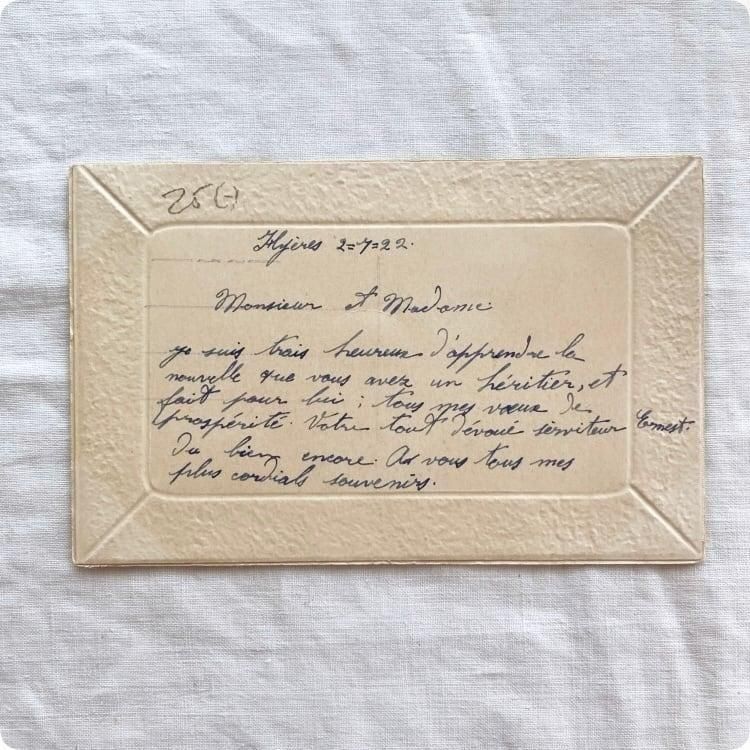 25(-)
Hyères 2=7=22.
Monsieur et Madame
je suis trais heureux d'apprendre la
nouvelle que vous avez un héritier, et
fait pour lui ; tous mes vœux de
prospérité. Votre tout dévoué serviteur Ernest.
Du bien encore. A vous tous mes
plus cordials souvenirs.